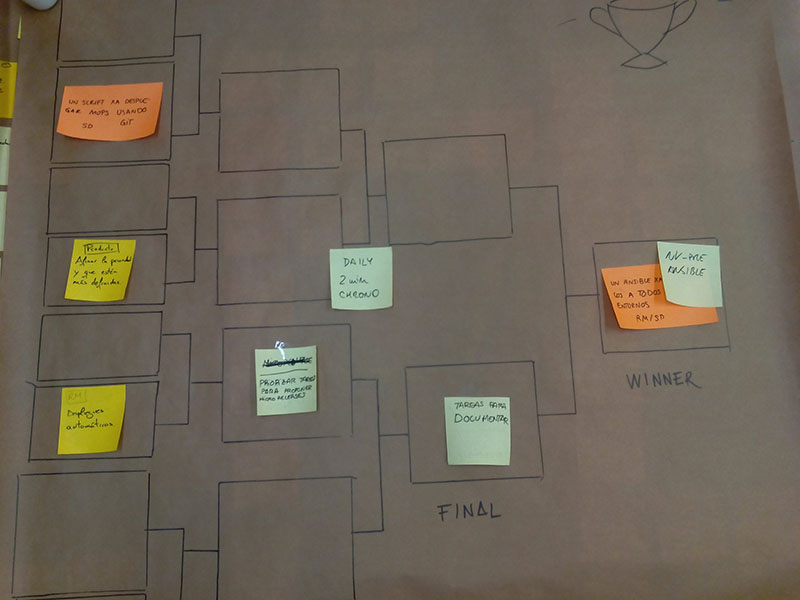 UN SCRIPT XA DESPLE-
GAR MOPS USANDO
SD GIT
Producto
Afinar la prioridad
y que estén
más definidas
RM
Despliegues
automáticos
DAILY
2 min
CHRONO
PARA PROPONER
MICRO RELEASES
TAREAS PARA
DOCUMENTAR
FINAL
NV-PRE
ANSIBLE
UN ANSIBLE XA
LOS A TODOS
ENTORNOS
RM/SD
WINNER